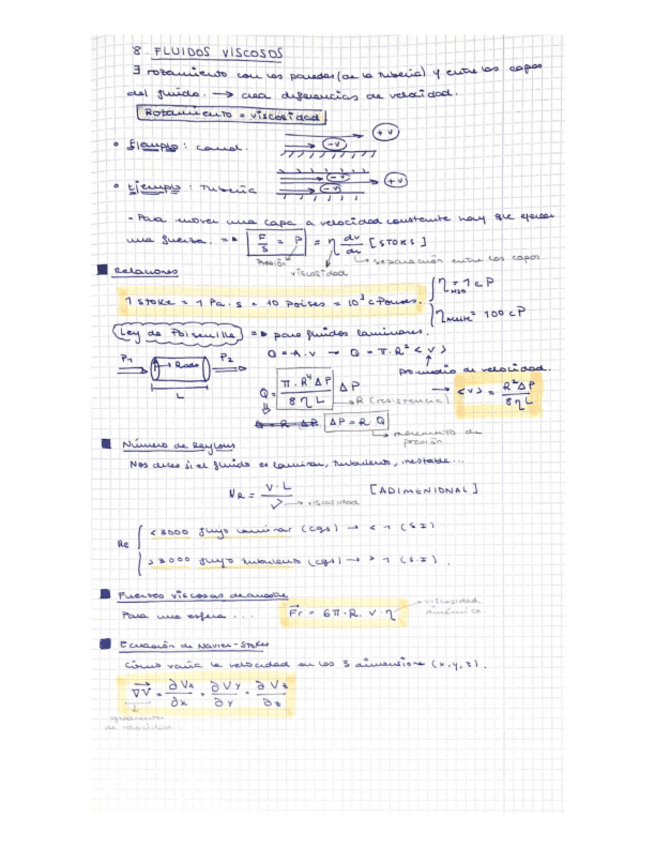 8. FLUIDOS VISCOSOS
∃ rozamiento con las paredes (de la tubería) y entre las capas
del fluido. → crea diferencias de velocidad.
Rozamiento = viscosidad
• Ejemplo: canal. -v +v
• Ejemplo: Tubería -v +v
- Para mover una capa a velocidad constante hay que ejercer
una fuerza. => F/S = P = η dv/dr [STOKE]
Presión
viscosidad
→ separación entre las capas
Relaciones
1 stoke = 1 Pa·s = 10 Poises = 10³ cPoises.
η H2O = 1 cP
= 100 cP
Ley de Poiseuille => para fluidos laminares.
Q = A·v → Q = π·R²<v>
promedio de velocidad.
P1 Radio P2
L
Q = π·R⁴ΔP / 8ηL ΔP
→ R (resistencia)
→ <v> = R²ΔP / 8ηL
Q = R ΔP ΔP = R Q
→ incremento de
presión
Número de
Nos dices si el fluido es laminar, turbulento, inestable...
NR = V·L / ν [ADIMENIONAL]
→ viscosidad
Re
< 3000 flujo laminar (cgs) → < 1 (S.I)
> 3000 flujo turbulento (cgs) → > 1 (S.I).
Fuerzas viscosas de arrastre
Para una esfera ... Fr = 6π·R·v·η
viscosidad
dinámica
Ecuación de Navier-Stokes
Cómo varía la velocidad en las 3 dimensiones (x,y,z).
∇V = ∂Vx/∂x + ∂Vy/∂y + ∂Vz/∂z
gradiente
de velocidad